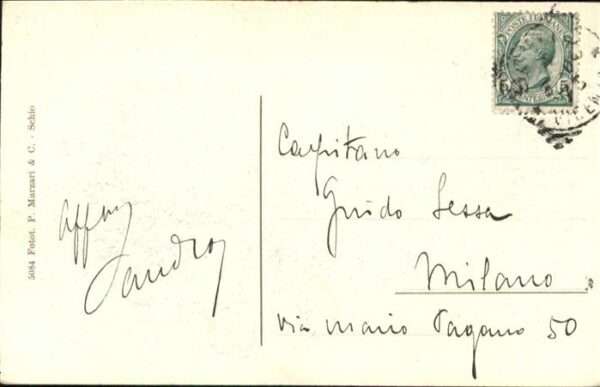 5084 Fotot. P. Marzari & C. - Schio
Sandro
Capitano
Guido Sessa
Milano
via Mario Pagano 50
POSTE ITALIANE
5 5